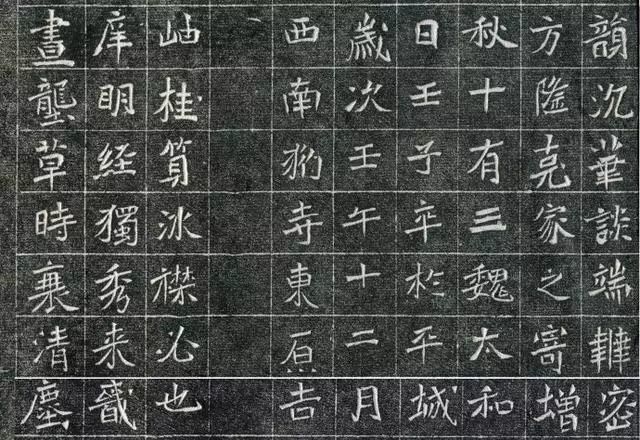 韻沉華談端密
方隆克家之寄增
秋十有三魏太和
日壬子卒於平城
歲次壬午十二月
西南豹寺東原吉
岫桂筭冰襟必也
庠明經獨秀来
晝龔草時襄清塵